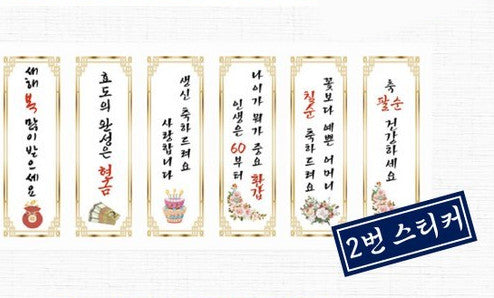 새해 복 많이 받으세요
효도의 완성은 현금
생신 축하드려요
사랑합니다
나이가 뭐가 중요 환갑
인생은 60부터
꽃보다 예쁜 어머니
칠순 축하드려요
축
팔순 건강하세요
2번 스티커